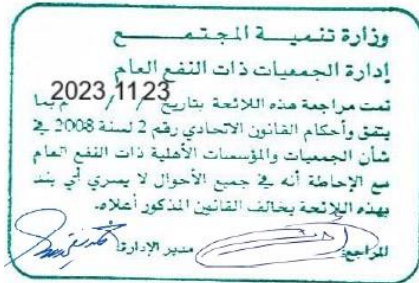 وزارة تنمية المجتمع
إدارة الجمعيات ذات النفع العام
تمت مراجعة هذه اللائحة بتاريخ / / م بما
2023 11 23
يتفق وأحكام القانون الاتحادي رقم 2 لسنة 2008 في
شأن الجمعيات والمؤسسات الأهلية ذات النفع العام
مع الإحاطة أنه في جميع الأحوال لا يسري أي بند
بهذه اللائحة يخالف القانون المذكور أعلاه.
المراجع مدير الإدارة